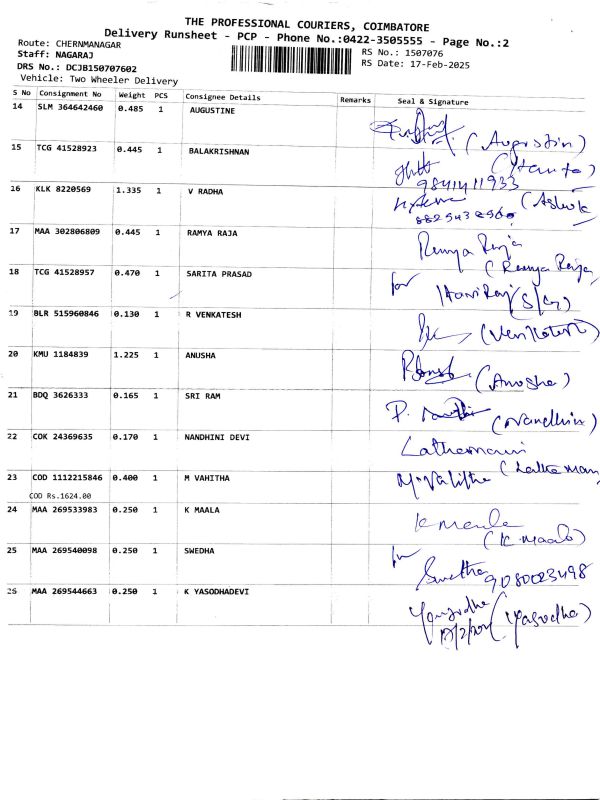 THE PROFESSIONAL COURIERS, COIMBATORE
Delivery Runsheet - PCP - Phone No.:0422-3505555 - Page No.:2
Route: CHERNMANAGAR
Staff: NAGARAJ
DRS No.: DCJB150707602
Vehicle: Two Wheeler Delivery
RS No.: 1507076
RS Date: 17-Feb-2025
S No Consignment No Weight PCS Consignee Details Remarks Seal & Signature
14 SLM 364642460 0.485 1 AUGUSTINE
(Augustin)
15 TCG 41528923 0.445 1 BALAKRISHNAN
9841411933
16 KLK 8220569 1.335 1 V RADHA
(Ashok
17 MAA 302806809 0.445 1 RAMYA RAJA
Ramya Raja
(Ramya Raja
18 TCG 41528957 0.470 1 SARITA PRASAD
for
19 BLR 515960846 0.130 1 R VENKATESH
(Venkatesh)
20 KMU 1184839 1.225 1 ANUSHA
(Anusha)
21 BDQ 3626333 0.165 1 SRI RAM
P.
(Nandhini)
22 COK 24369635 0.170 1 NANDHINI DEVI
Lathamani
(Latha Mani
23 COD 1112215846 0.400 1 M VAHITHA
COD Rs.1624.00
M.Vahitha
24 MAA 269533983 0.250 1 K MAALA
K Maala
(K. Maala)
25 MAA 269540098 0.250 1 SWEDHA
for
Swetha 9080023498
26 MAA 269544663 0.250 1 K YASODHADEVI
Yasodha (Yasodha)